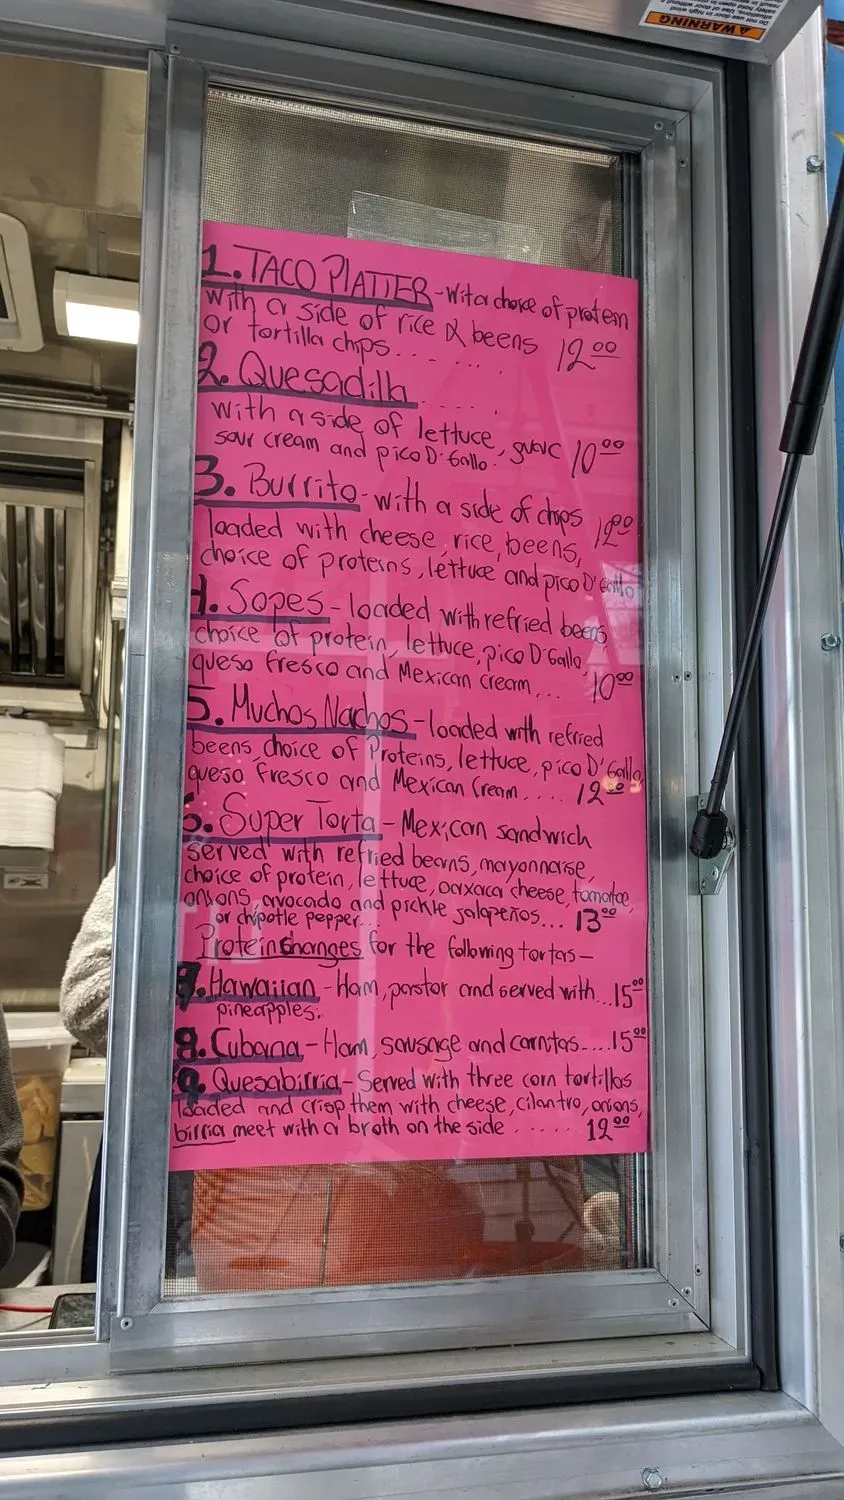 WARNING
Do not use door in high wind
1. TACO PLATTER - Wit a choice of protem
with a side of rice & beens
or tortilla chips... 12 00
2. Quesadilla
with a side of lettuce, guac 10 00
sour cream and pico D'Gallo.
3. Burrito - with a side of chips
loaded with cheese, rice, beens, 12 00
choice of proteins, lettuce and pico D'Gallo
4. Sopes - loaded with refried beens
choice of protein, lettuce, pico D'Gallo,
queso fresco and Mexican cream... 10 00
5. Muchos Nachos - loaded with refried
beens, choice of Proteins, lettuce, pico D'Gallo,
queso fresco and Mexican Cream.... 12 00
6. Super Torta - Mexican sandwich
served with refried beans, mayonnaise,
choice of protein, lettuce, oaxaca cheese, tomatoe,
onions, avocado and pickle jalapeños... 13 00
or chipotle pepper...
Protein changes for the following tortas -
7. Hawaiian - Ham, pastor and served with...15 00
pineapples.
8. Cubana - Ham, sausage and carnitas....15 00
9. Quesabirria - Served with three corn tortillas
loaded and crisp them with cheese, cilantro, onions,
birria meet with a broth on the side ...... 12 00